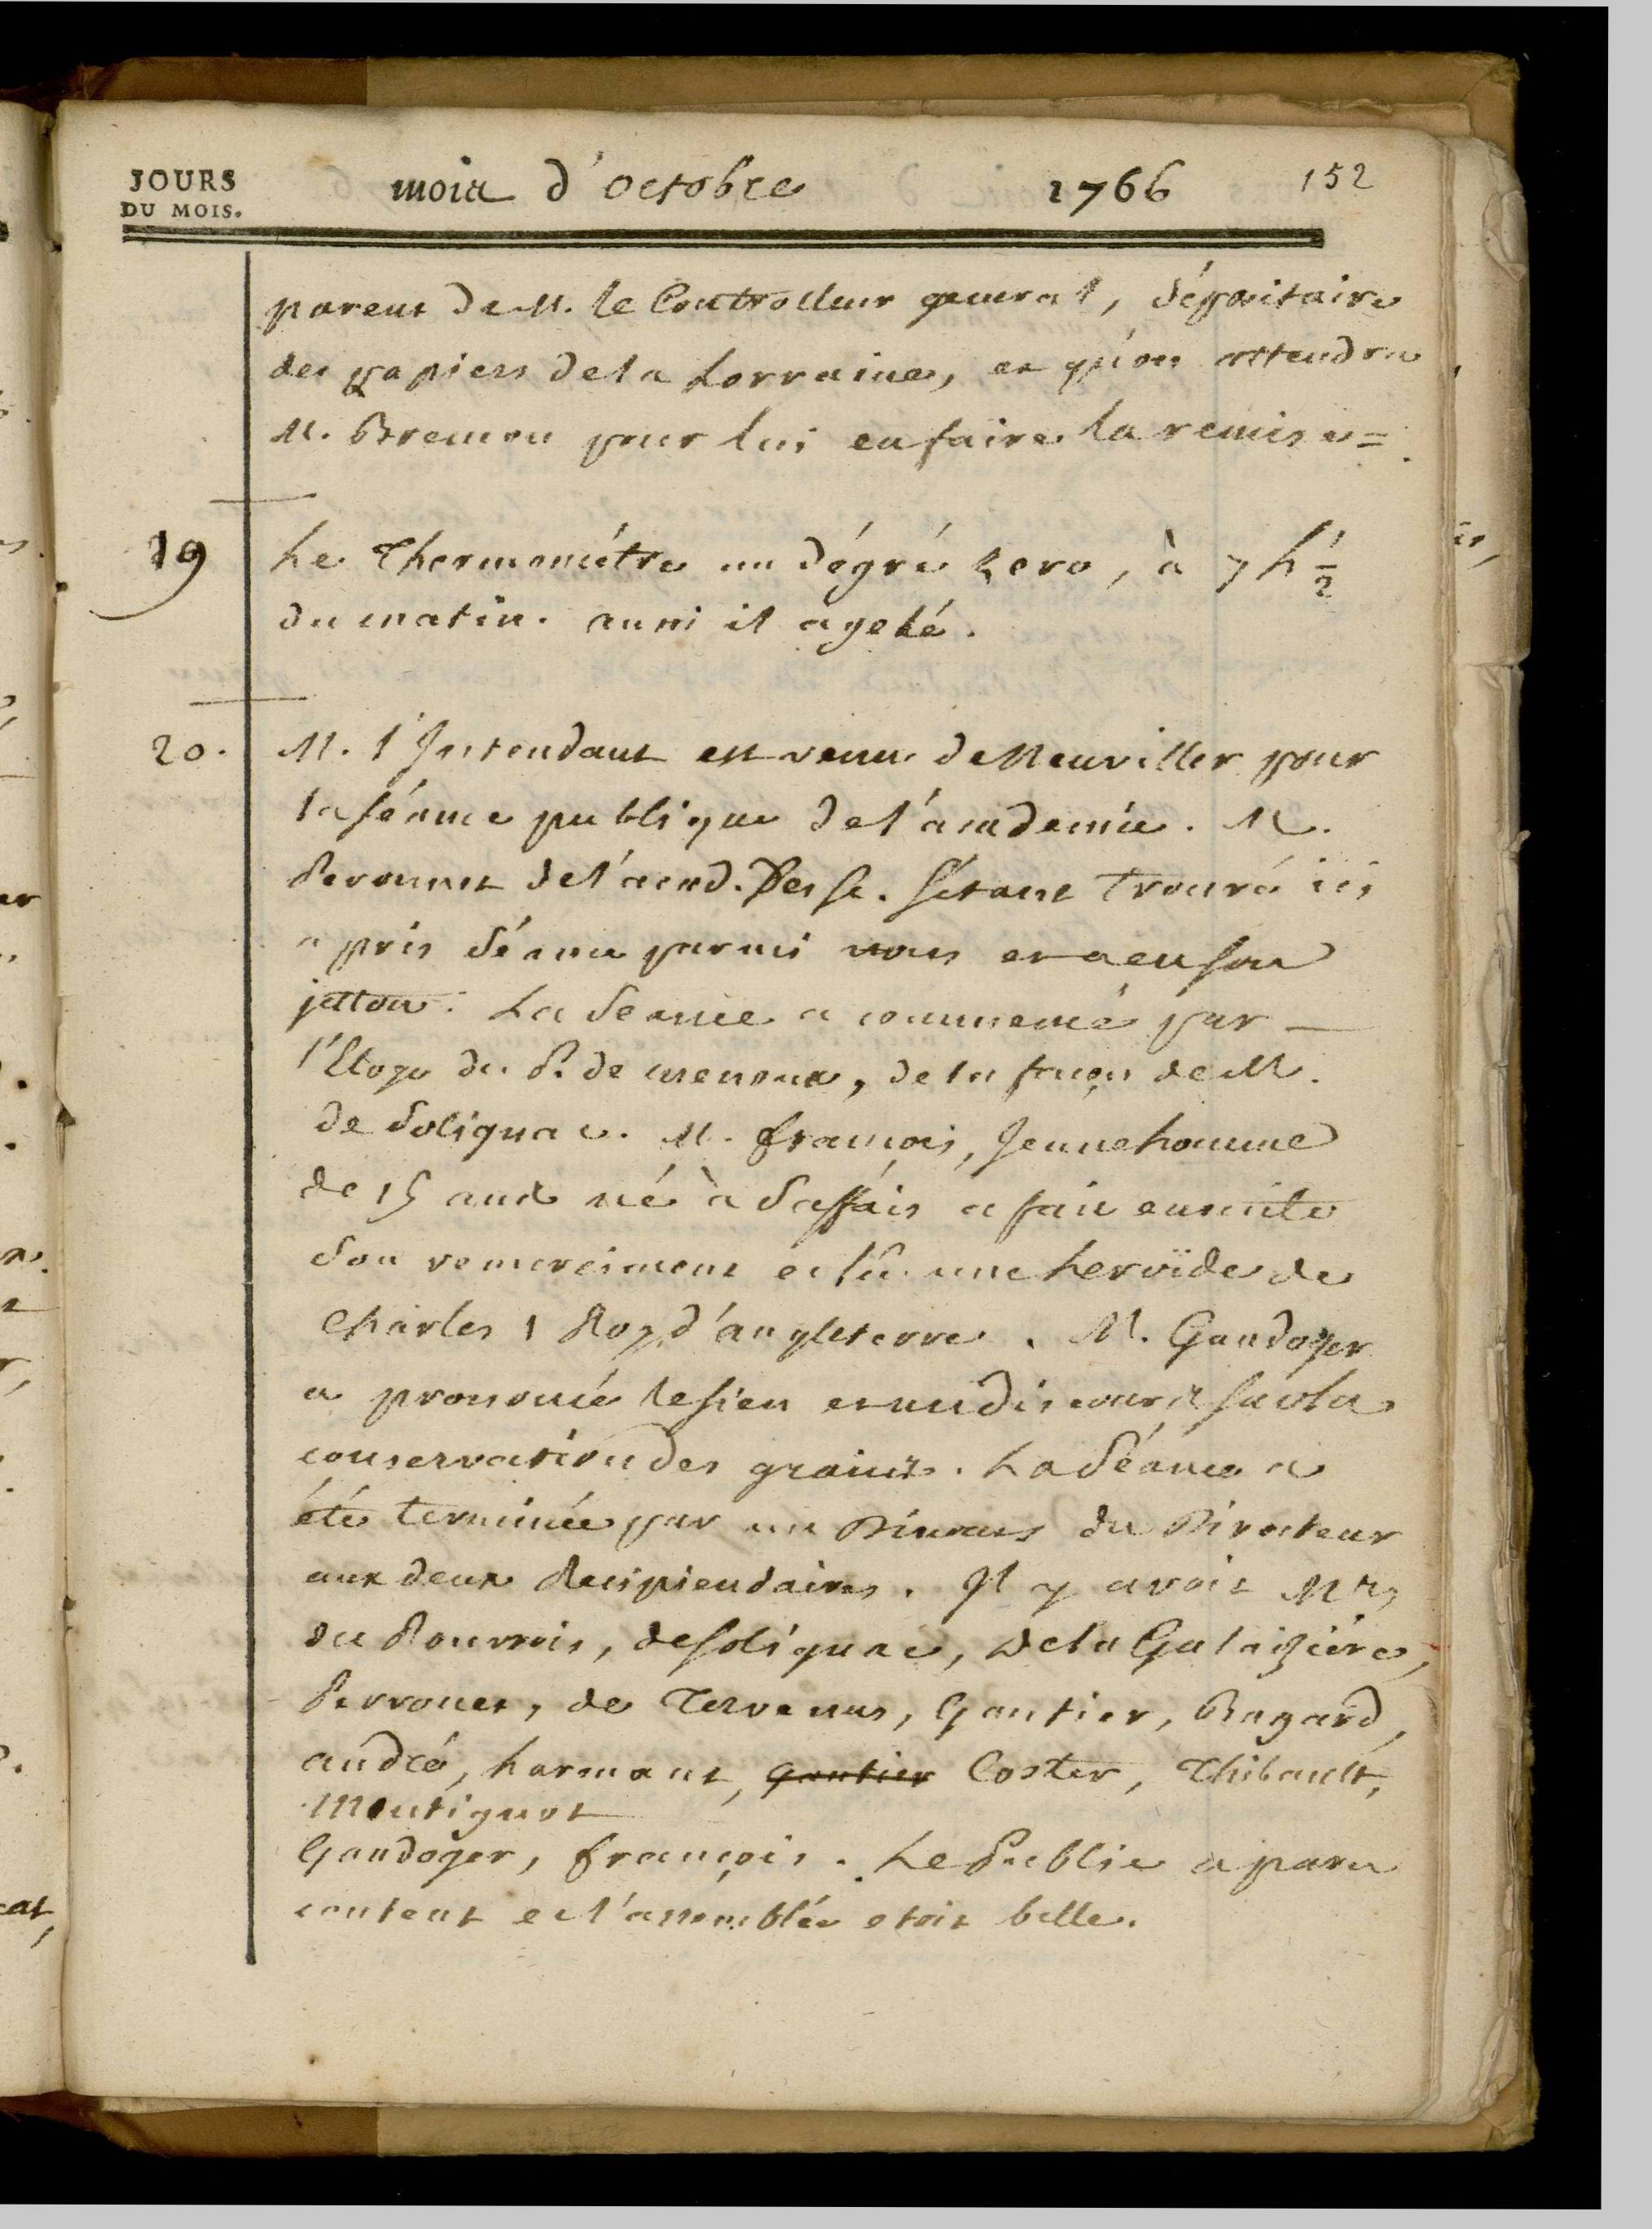 JOURS
DU MOIS.
mois d'octobre 1766 152
parent de M. le Controlleur general, dépositaire
des papiers de la Lorraine, et qu'on attendra
M. Bremon pour lui en faire la remise =.
19 Le Thermométre au dégré zero, à 7 h 1/2
du matin. aussi il a gelé.
20. M. l'Intendant est venu de Neuviller pour
la séance publique de l'académie. M.
Peronnet de l'acad. Des sc. s'étant trouvé ici
a pris séance parmi nous et a eu son
jetton. La Seance a commencé par
l'Eloge du P. de menoux, de la façon de M.
de Solignac. M. françois, Jeune homme
de 15 ans né à Saffais a fait ensuite
son remerciment et lû une heroïde de
Charles 1 Roy d'angleterre. M. Gandoger
a prononcé le sien et un discours sur la
conservation des grains. La Séance a
été terminée par un Discours du Directeur
aux deux Recipiendaires. Il y avoit Mrs
du Rouvrois, de solignac, de la Galaizière,
Perronet, de Tervenus, Gautier, Bagard,
andré, harmant, gautier Coster, Thibault,
Montignot
Gandoger, françois. Le Public a paru
content et l'assemblée etoit belle.